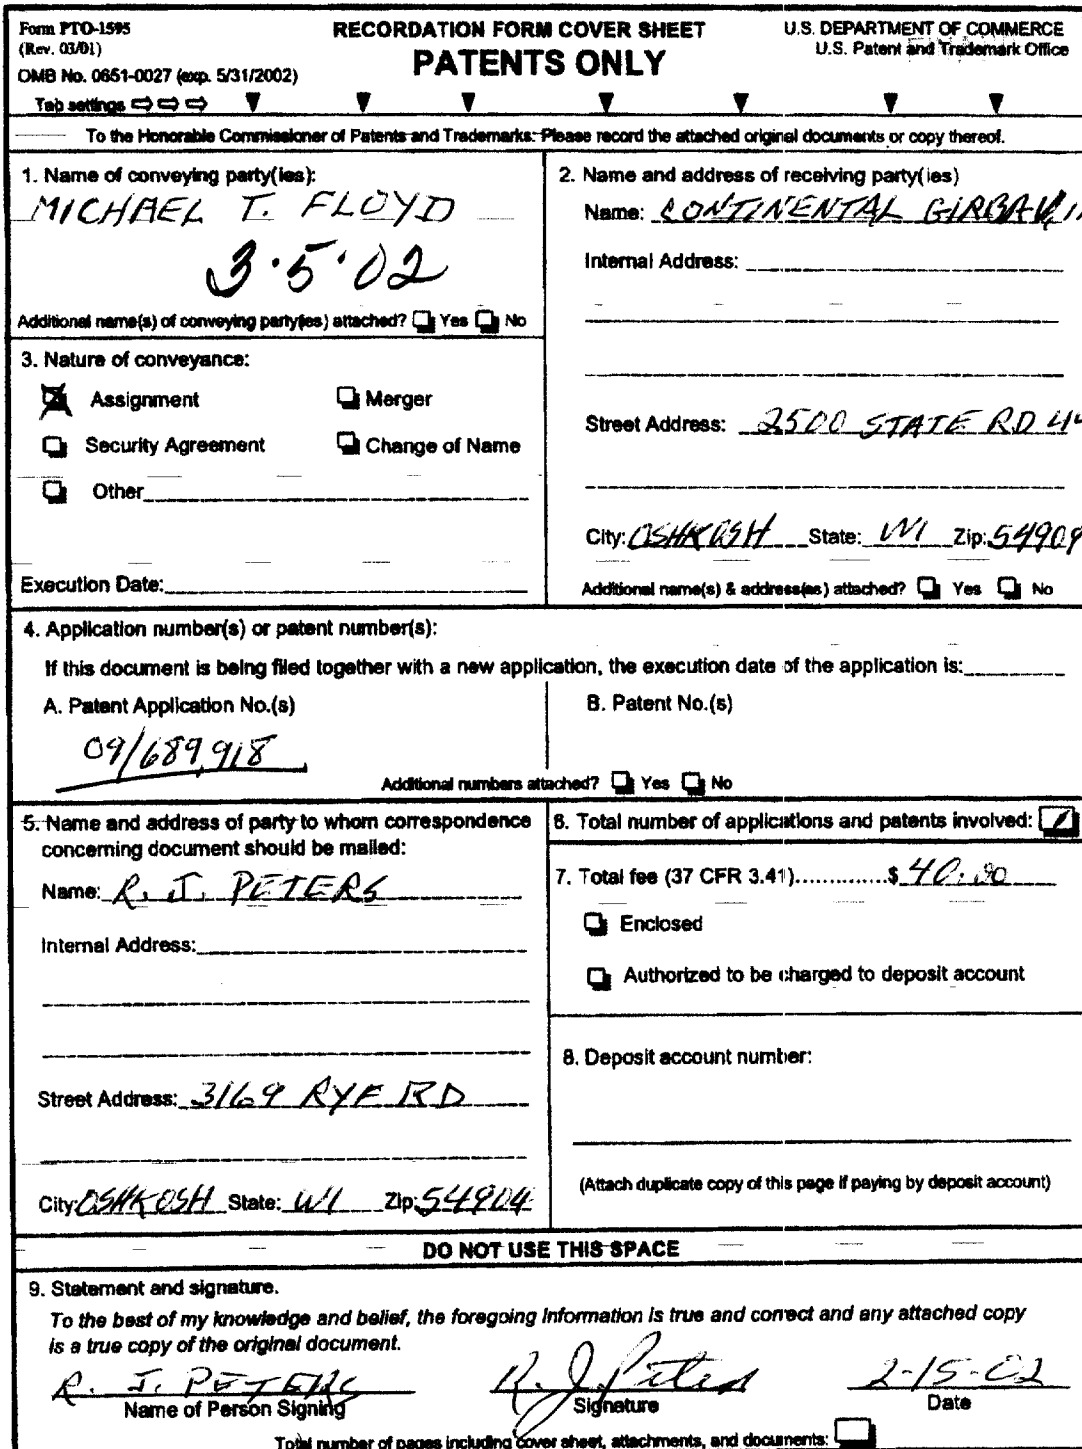 Form PTO-1595
(Rev. 03/01)
OMB No. 0651-0027 (exp. 5/31/2002)
Tab settings
RECORDATION FORM COVER SHEET
PATENTS ONLY
U.S. DEPARTMENT OF COMMERCE
U.S. Patent and Trademark Office
To the Honorable Commissioner of Patents and Trademarks: Please record the attached original documents or copy thereof.
1. Name of conveying party(ies):
MICHAEL T. FLOYD
3·5·02
Additional name(s) of conveying party(ies) attached? Yes No
2. Name and address of receiving party(ies)
Name: CONTINENTAL GIRBAU,
Internal Address:
Street Address: 2500 STATE RD 44
City: OSHKOSH State: WI Zip: 54904
Additional name(s) & address(es) attached? Yes No
3. Nature of conveyance:
Assignment Merger
Security Agreement Change of Name
Other
Execution Date:
4. Application number(s) or patent number(s):
If this document is being filed together with a new application, the execution date of the application is:
A. Patent Application No.(s) B. Patent No.(s)
09/689,918
Additional numbers attached? Yes No
5. Name and address of party to whom correspondence
concerning document should be mailed:
Name: R. J. PETERS
Internal Address:
Street Address: 3169 RYE RD
City: OSHKOSH State: WI Zip: 54904
6. Total number of applications and patents involved: 1
7. Total fee (37 CFR 3.41)..............$ 40.00
Enclosed
Authorized to be charged to deposit account
8. Deposit account number:
(Attach duplicate copy of this page if paying by deposit account)
DO NOT USE THIS SPACE
9. Statement and signature.
To the best of my knowledge and belief, the foregoing information is true and correct and any attached copy
is a true copy of the original document.
R. J. PETERS R. J. Peters 2-15-02
Name of Person Signing Signature Date
Total number of pages including cover sheet, attachments, and documents: